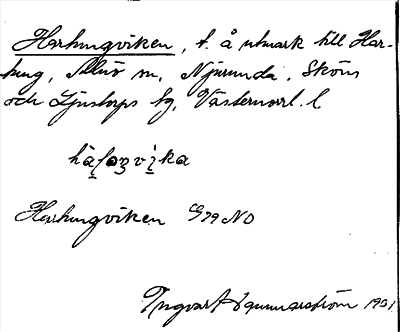 Harhungviken, t. å utmark till Har-
hung, Allnö sn, Njurunda, Sköns
och Ljustorps tg, Västernorrl. l.
Harhungviken G79 NO
Ingvar Hammarström 1931